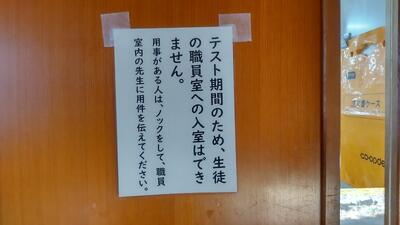 テスト期間のため、生徒
の職員室への入室はでき
ません。
用事がある人は、ノックをして、職員
室内の先生に用件を伝えてください。